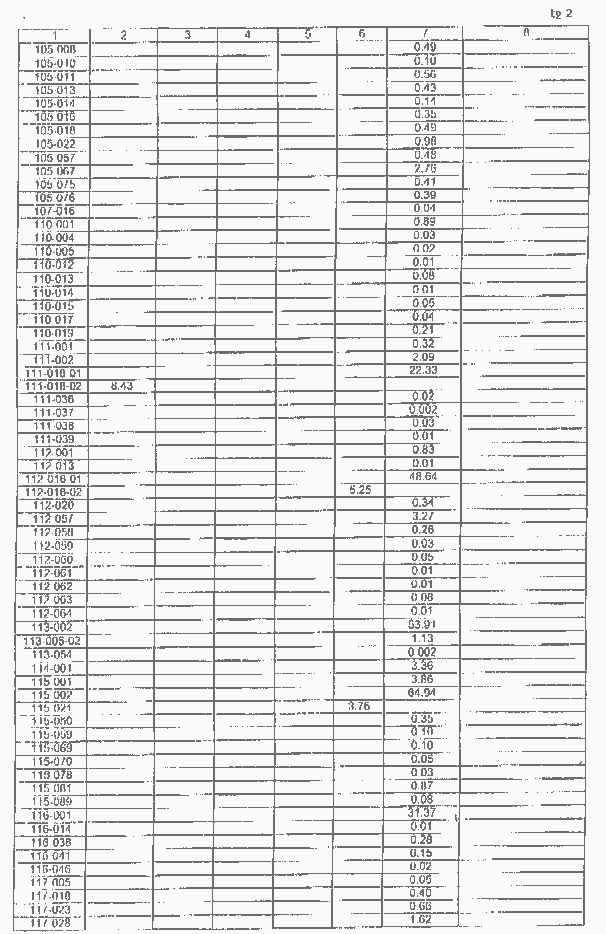 tp 2
1 2 3 4 5 6 7 8
105 008 0.49
105-010 0.10
105-011 0.56
105-013 0.43
105-014 0.14
105 016 0.35
105-018 0.49
105-022 0.98
105 057 0.48
105 067 2.76
105 075 0.41
105 076 0.39
107-016 0.04
110 001 0.89
110-004 0.03
110-005 0.02
110-012 0.01
110-013 0.08
110-014 0.01
110-015 0.05
110 017 0.04
110-019 0.21
111-001 0.32
111-002 2.09
111-018 01 22.33
111-018-02 8.43
111-036 0.02
111-037 0.002
111-038 0.03
111-039 0.01
112-001 0.83
112 013 0.01
112 016 01 48.64
112-016-02 5.25
112-020 0.34
112 057 3.27
112-058 0.26
112-059 0.03
112-060 0.05
112-061 0.01
112 062 0.01
112 063 0.08
112-064 0.01
113-002 53.91
113-005-02 1.13
113-054 0 002
114-001 3.36
115 001 3.86
115 002 64.94
115 021 3.76
115-050 0.35
115-059 0.10
115-069 0.10
115-070 0.05
115 078 0 03
115 081 0.87
115-089 0.08
116-001 31.37
116-014 0.01
116 038 0.28
116 041 0.15
116-046 0.02
117 005 0.05
117-018 0.40
117-023 0.66
117 028 1.62